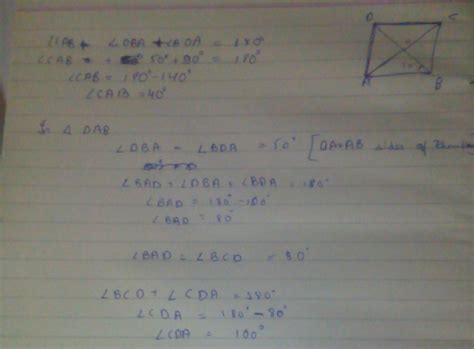 D C
A B
∠CAB + ∠DBA + ∠BOA = 180°
∠CAB + 50° + 90° = 180°
∠CAB = 180° - 140°
∠CAB = 40°
In △ DAB
∠DBA = ∠BDA = 50° [DA=AB sides of
∠BAD + ∠DBA + ∠BDA = 180°
∠BAD = 180° - 100°
∠BAD = 80°
∠BAD = ∠BCD = 80°
∠BCD + ∠CDA = 180°
∠CDA = 180° - 80°
∠CDA = 100°